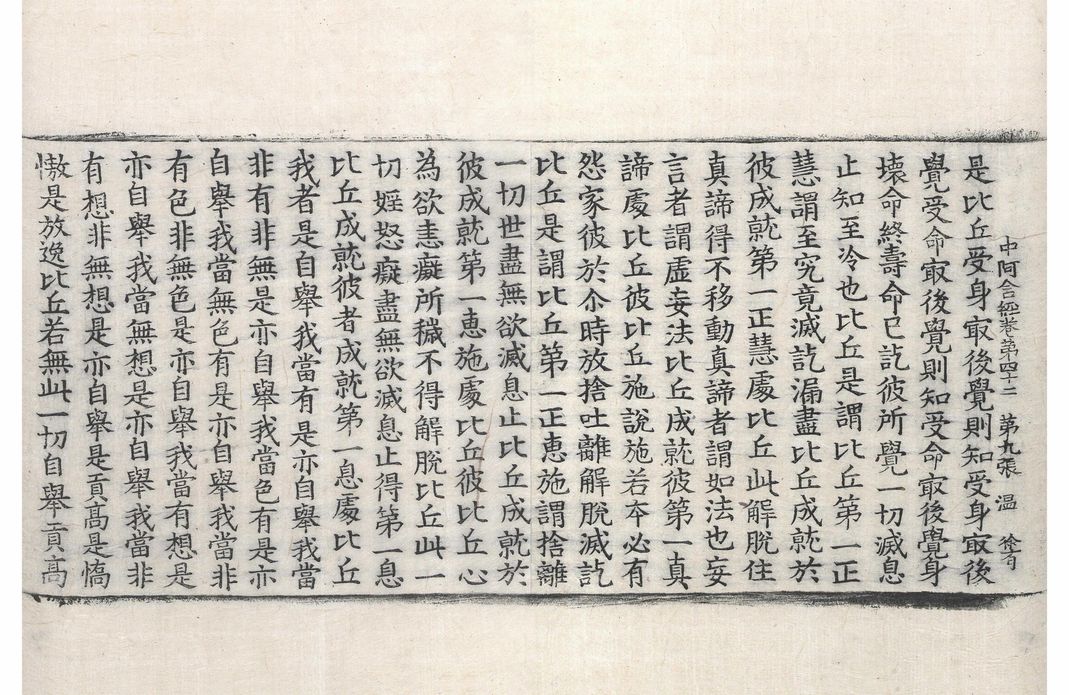 中阿含經卷第四十二 第九張 溫
是比丘受身冣後覺則知受身冣後
覺受命冣後覺則知受命冣後覺身
壞命終壽命已訖彼所覺一切滅息
止知至冷也比丘是謂比丘第一正
慧謂至究竟滅訖漏盡比丘成就於
彼成就第一正慧處比丘此解脫住
真諦得不移動真諦者謂如法也妄
言者謂虛妄法比丘成就彼第一真
諦處比丘彼比丘施說施若本必有
怨家彼於尒時放捨吐離解脫滅訖
比丘是謂比丘第一正惠施謂捨離
一切世盡無欲滅息止比丘成就於
彼成就第一惠施處比丘彼比丘心
為欲恚癡所穢不得解脫比丘此一
切婬怒癡盡無欲滅息止得第一息
比丘成就彼者成就第一息處比丘
我者是自舉我當有是亦自舉我當
非有非無是亦自舉我當色有是亦
自舉我當無色有是亦自舉我當非
有色非無色是亦自舉我當有想是
亦自舉我當無想是亦自舉我當非
有想非無想是亦自舉是貢高是憍
慠是放逸比丘若無此一切自舉貢高